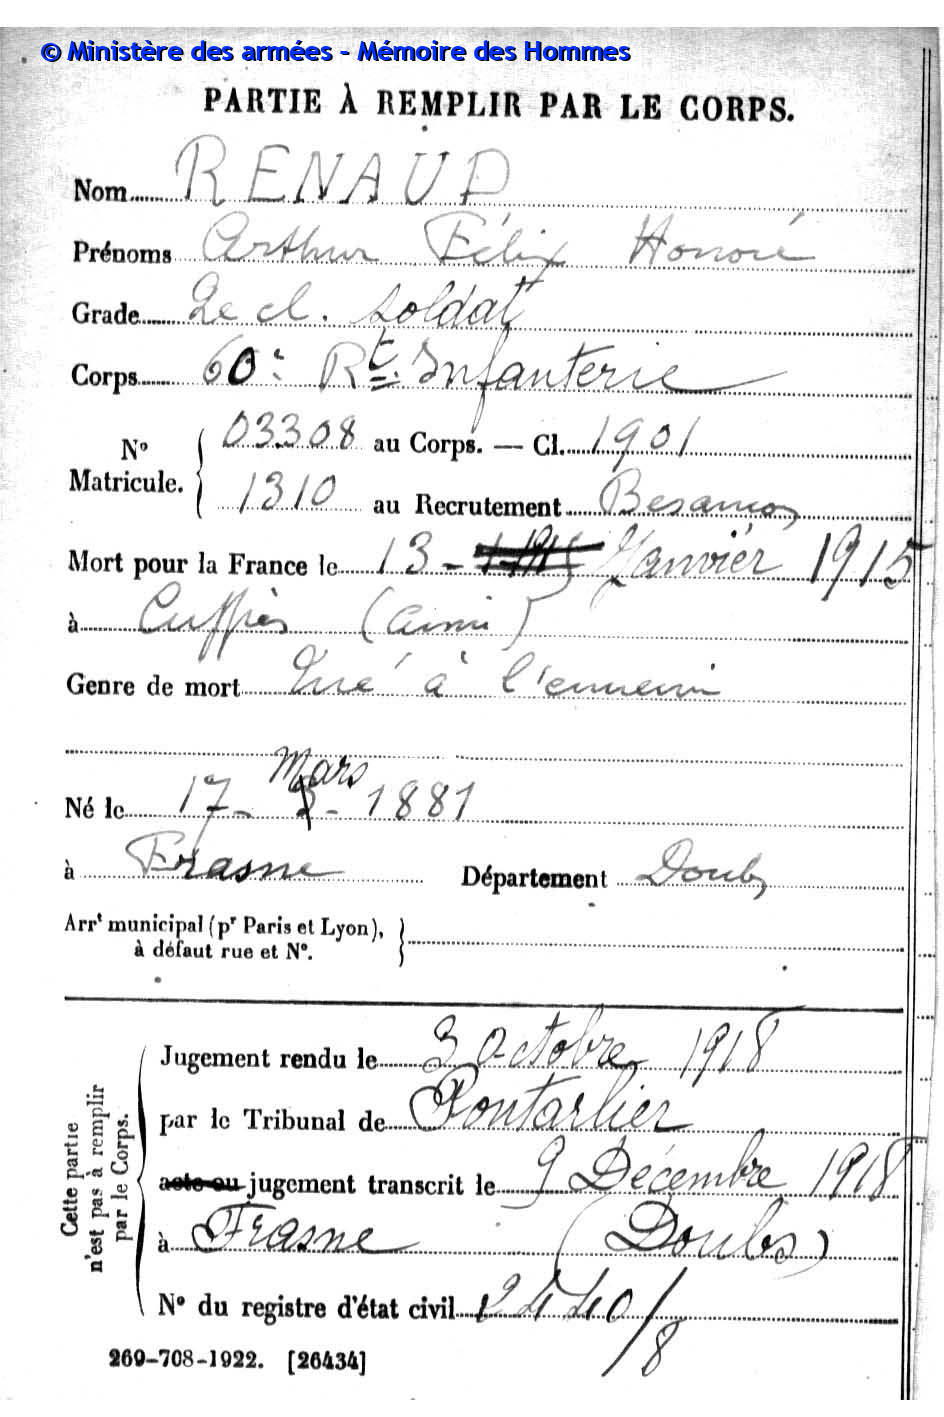 © Ministère des armées - Mémoire des Hommes
PARTIE À REMPLIR PAR LE CORPS.
Nom RENAUD
Prénoms Arthur Félix Honoré
Grade 2e cl. Soldat
Corps 60e Rt. Infanterie
N° Matricule. { 03308 au Corps. — Cl. 1901
1310 au Recrutement Besançon
Mort pour la France le 13 - Janvier 1915
à Cuffies (Aisne)
Genre de mort Tué à l'ennemi
Né le 17 - Mars - 1881
à Frasne Département Doubs
Arrt municipal (pr Paris et Lyon), }
à défaut rue et N°.
Cette partie
n'est pas à remplir
par le Corps.
Jugement rendu le 3 Octobre 1918
par le Tribunal de Pontarlier
acte ou jugement transcrit le 9 Décembre 1918
à Frasne (Doubs)
N° du registre d'état civil 2440/8
269-708-1922. [26434]